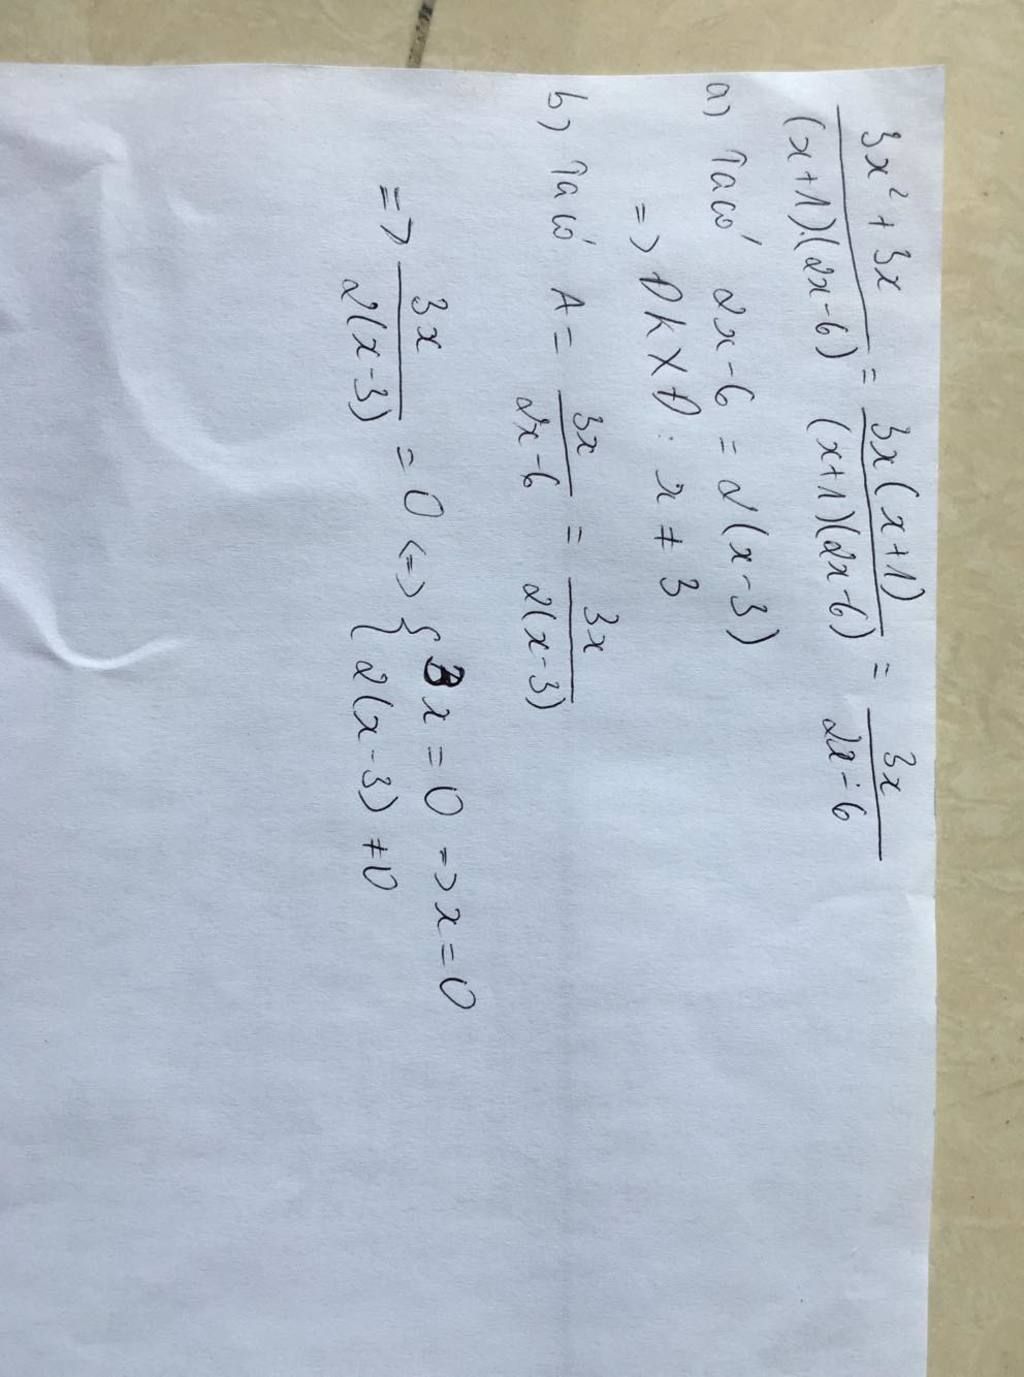 3x² + 3x / (x+1).(2x-6) = 3x(x+1) / (x+1)(2x-6) = 3x / 2x-6
a) Ta có 2x-6 = 2(x-3)
=> ĐKXĐ: x ≠ 3
b) Ta có A = 3x / 2x-6 = 3x / 2(x-3)
=> 3x / 2(x-3) = 0 <=> { 3x = 0 => x = 0
2(x-3) ≠ 0